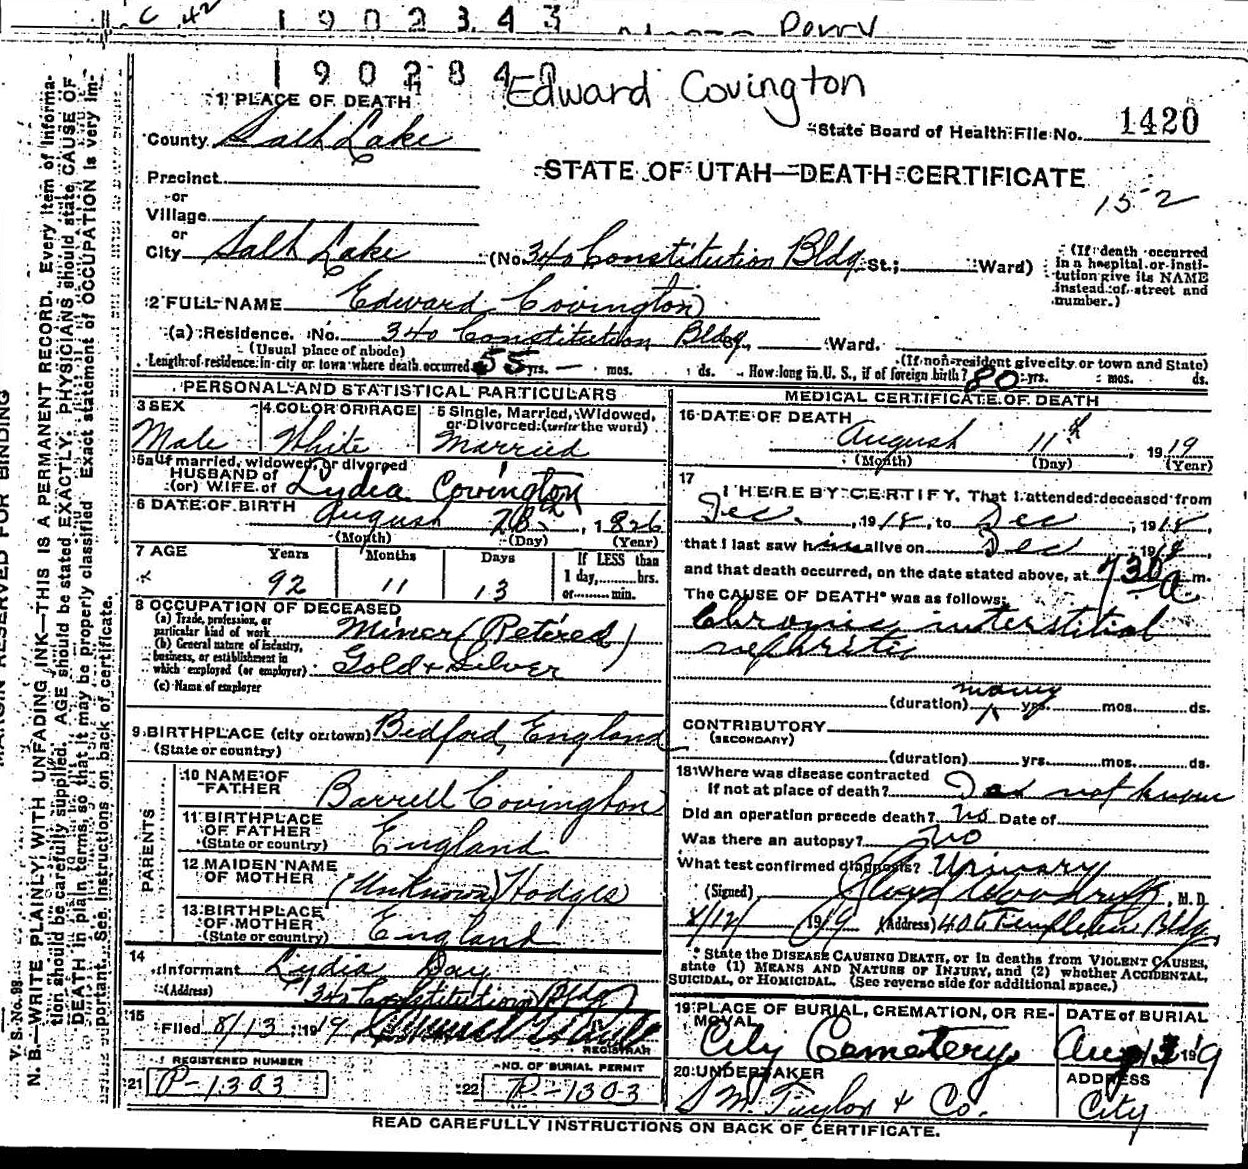 1902343
Perry
190284
Edward Covington
1 PLACE OF DEATH
State Board of Health File No. 1420
County Salt Lake
STATE OF UTAH—DEATH CERTIFICATE
152
Precinct
or
Village
or
City Salt Lake (No. 340 Constitution Bldg. St.; Ward)
(If death occurred
in a hospital or insti-
tution give its NAME
instead of street and
number.)
2 FULL NAME Edward Covington
(a) Residence. No. 340 Constitution Bldg. Ward.
(Usual place of abode) (If non-resident give city or town and State)
Length of residence in city or town where death occurred 55 yrs. — mos. ds. How long in U. S., if of foreign birth? 80 yrs. mos. ds.
PERSONAL AND STATISTICAL PARTICULARS
3 SEX
Male
4 COLOR OR RACE
White
5 Single, Married, Widowed,
or Divorced (write the word)
Married
5a If married, widowed, or divorced
HUSBAND of
(or) WIFE of Lydia Covington
6 DATE OF BIRTH August 28, 1826
(Month) (Day) (Year)
7 AGE Years Months Days If LESS than
1 day, hrs.
or min.
92 11 13
8 OCCUPATION OF DECEASED
(a) Trade, profession, or
particular kind of work Miner (Retired)
(b) General nature of industry,
business, or establishment in
which employed (or employer) Gold & Silver
(c) Name of employer
9 BIRTHPLACE (city or town) Bedford, England
(State or country)
PARENTS
10 NAME OF
FATHER Barrell Covington
11 BIRTHPLACE
OF FATHER
(State or country) England
12 MAIDEN NAME
OF MOTHER (Unknown) Hodges
13 BIRTHPLACE
OF MOTHER
(State or country) England
14
Informant Lydia Day
(Address) 340 Constitution Bldg
15
Filed 8/13 1919
REGISTRAR
REGISTERED NUMBER
21 P-1303
NO. OF BURIAL PERMIT
22 P-1303
MEDICAL CERTIFICATE OF DEATH
16 DATE OF DEATH
August 11th, 1919
(Month) (Day) (Year)
17
I HEREBY CERTIFY, That I attended deceased from
Dec., 1918, to Dec, 1918,
that I last saw him alive on Dec 1918,
and that death occurred, on the date stated above, at 730 a m.
The CAUSE OF DEATH* was as follows:
Chronic interstitial
nephritis
(duration) many yrs. mos. ds.
CONTRIBUTORY
(SECONDARY)
(duration) yrs. mos. ds.
18 Where was disease contracted
if not at place of death? Does not know
Did an operation precede death? No Date of
Was there an autopsy? No
What test confirmed diagnosis? Urinary
(Signed) Woodruff, M.D.
8/12/ 1919 (Address) 406 Templeton Bldg.
* State the DISEASE CAUSING DEATH, or in deaths from VIOLENT CAUSES,
state (1) MEANS AND NATURE OF INJURY, and (2) whether ACCIDENTAL,
SUICIDAL, or HOMICIDAL. (See reverse side for additional space.)
19 PLACE OF BURIAL, CREMATION, OR RE-
MOVAL
City Cemetery
DATE of BURIAL
Aug 13 1919
20 UNDERTAKER
S. M. Taylor & Co.
ADDRESS
City
READ CAREFULLY INSTRUCTIONS ON BACK OF CERTIFICATE.
MARGIN RESERVED FOR BINDING
V. S. No. 98
N. B.—WRITE PLAINLY, WITH UNFADING INK—THIS IS A PERMANENT RECORD. Every item of informa-
tion should be carefully supplied. AGE should be stated EXACTLY. PHYSICIANS should state CAUSE OF
DEATH in plain terms, so that it may be properly classified. Exact statement of OCCUPATION is very im-
portant. See instructions on back of certificate.